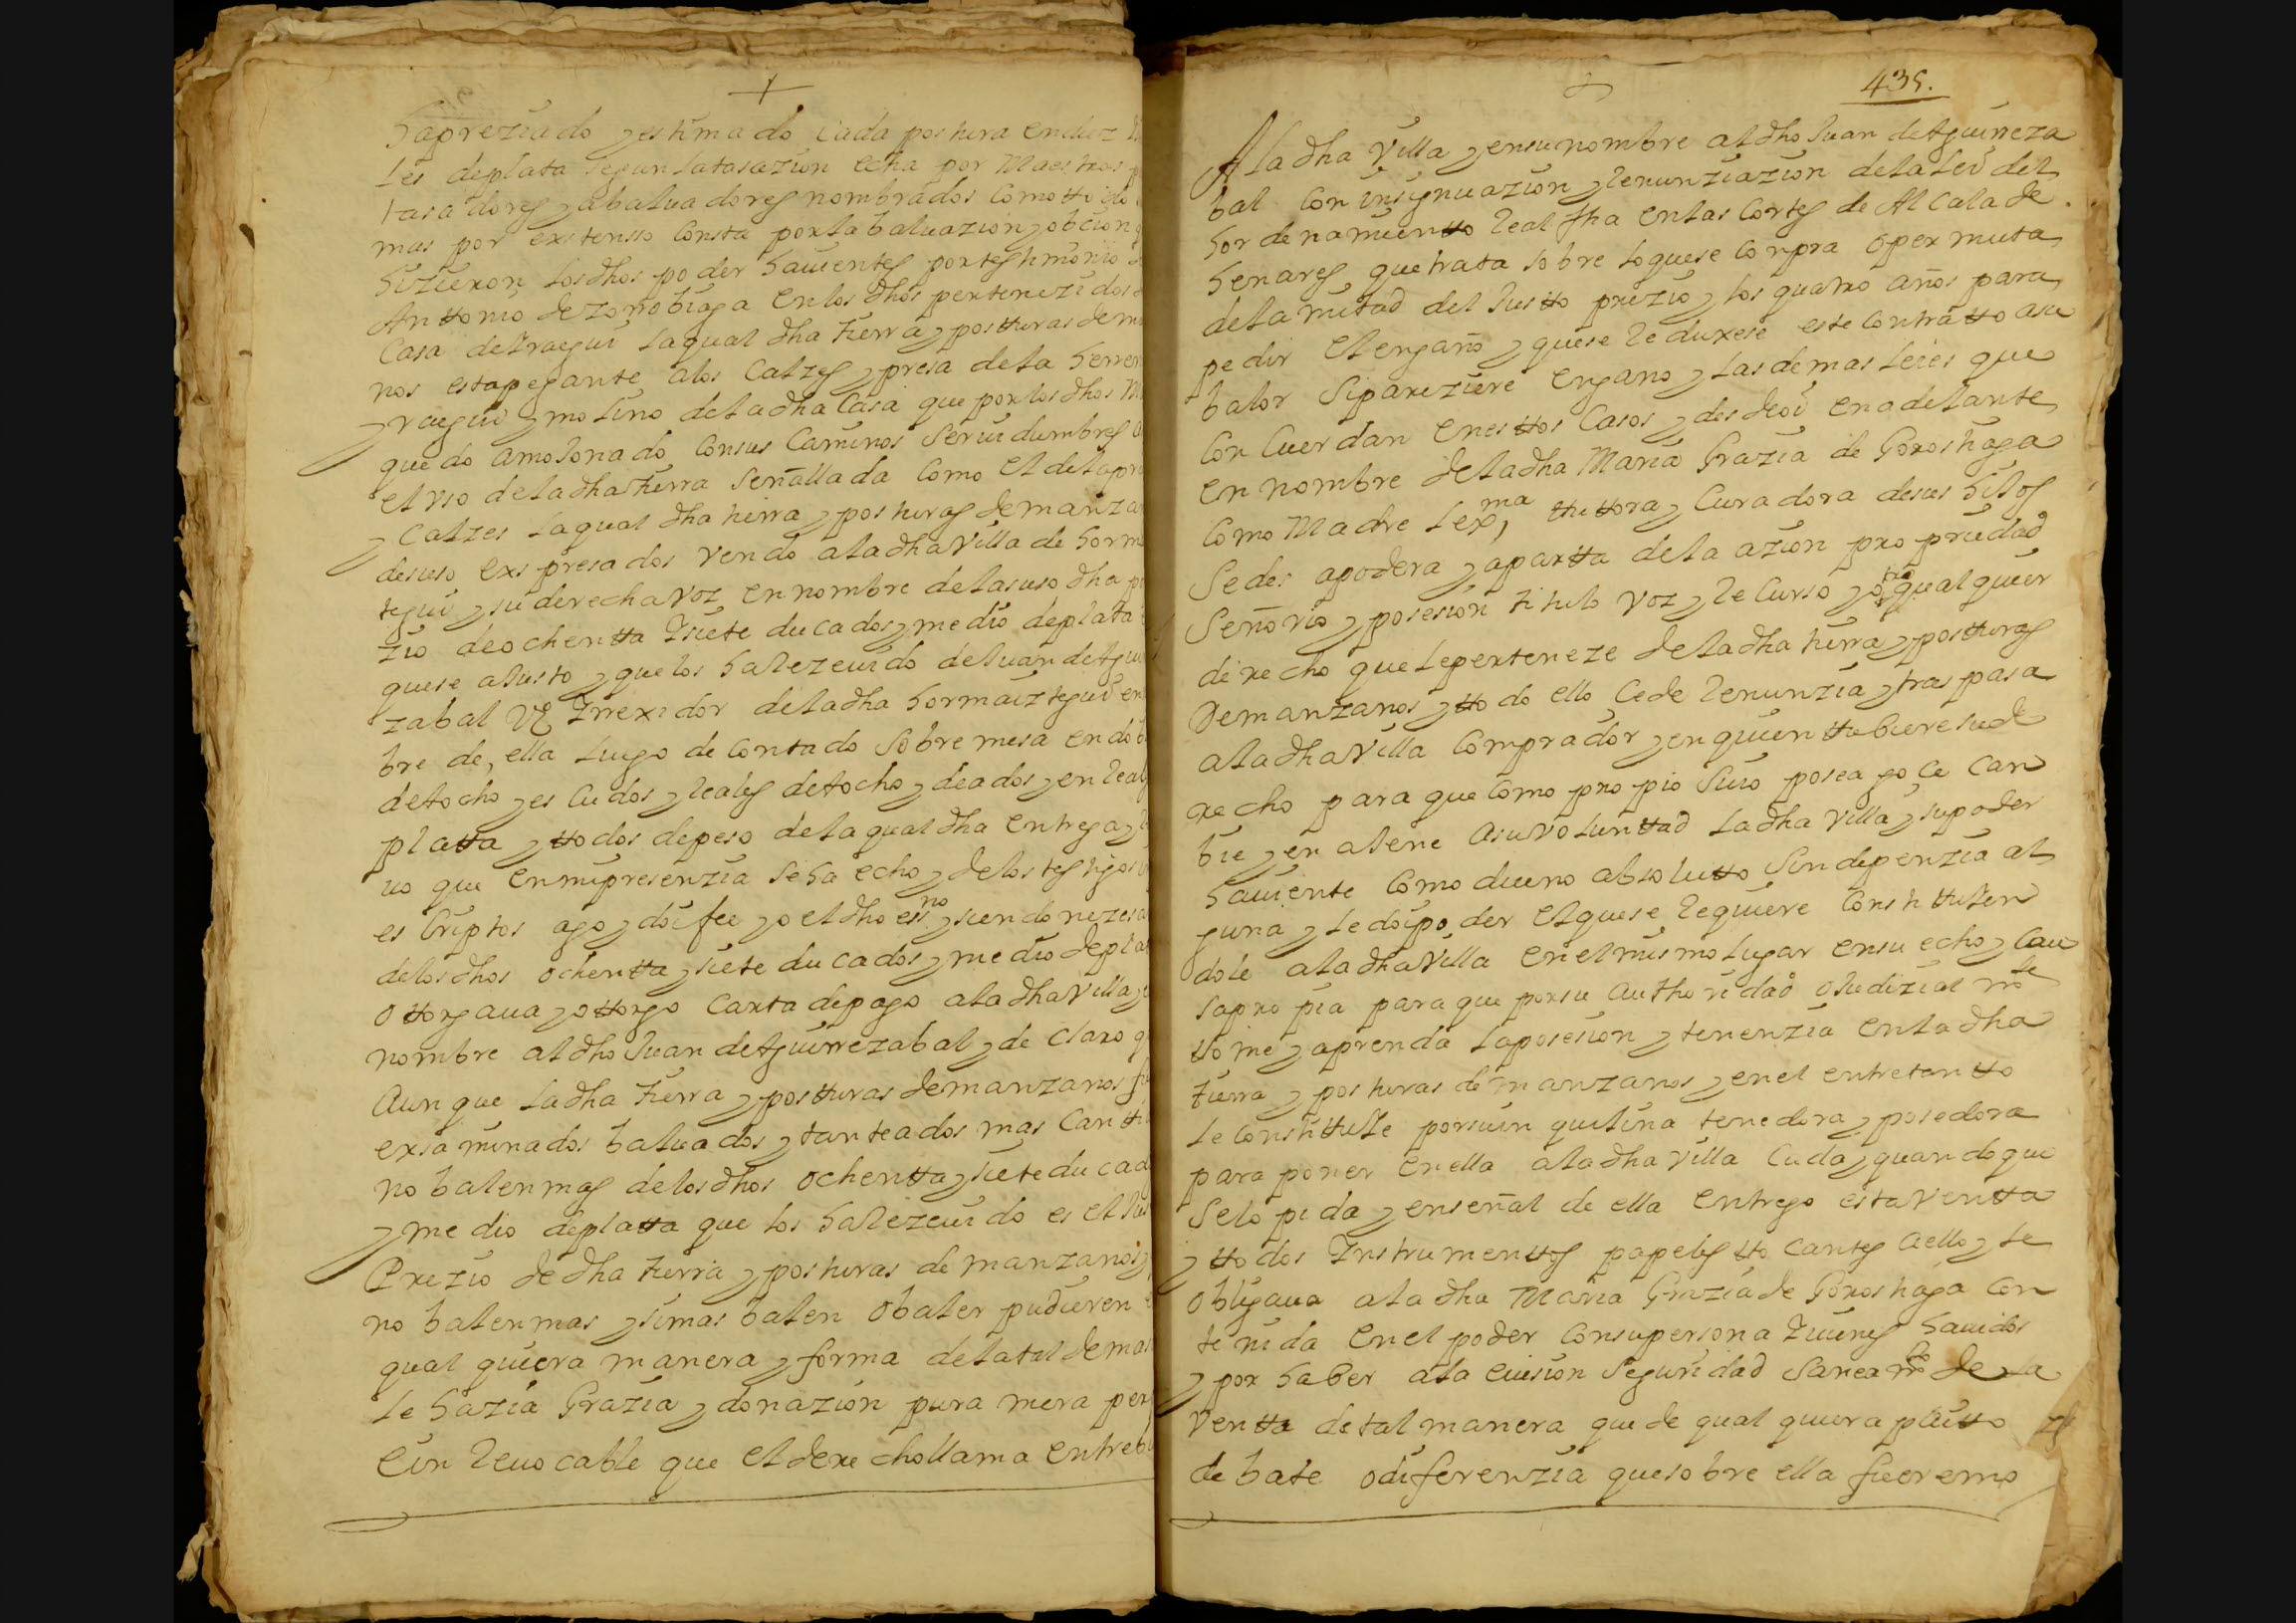 hapreziado y estimado cada postura en diez
les de plata segun la tasazion echa por Maestros
tasadores y abaluadores nombrados como tto do
mas por exstensso consta por la baluazion y obcion
hizieron los dhos poder hauientes por testimonio
Anttonio de Zorrobiaga en los dhos pertenezidos
Casa de Yraegui la qual dha tierra y postturas de
nos esta pegante a los Calzes y presa de la herre
yraegui y molino de la dha Casa que por los dhos
quedo amolonado con sus Caminos seruidumbres
el vso de la dha tierra señallada como el de la
y Calzes la qual dha tierra y posturas de manza
desuso exspresados vendo a la dha villa de horm
tegui y su derecha voz en nombre de la suso dha
zio de ochentta y siete ducados y medio de plata
quese aJusto y que los ha rezeuido de Juan de Agui
zabal Vº y rrexidor de la dha hormaiztegui en
bre de ella luego de contado sobre mesa en dob
de tocho y escudos y reales de tocho y de a dos y en real
platta y ttodos de peso de la qual dha entrega y
uo que en mi presenzia se ha echo y de los testigos
escriptos ago y doi fee yo el dho essno y siendo nezesa
de los dhos ochentta y siete ducados y medio de pla
ottorgaua y ottorgo carta de pago a la dha villa y
nombre al dho Juan de Aguirrezabal y declaro q
Aunque la dha tierra y postturas de manzanos
exsaminados baluados y tanteados mas cantti
no balen mas de los dhos ochentta y siete ducad
y medio de platta que los ha rezeuido es el Jus
Prezio de dha tierra y posturas de manzanos y
no balen mas y si mas balen o baler pudieren
qual quiera manera y forma de la tal demas
le hazia Grazia y donazion pura mera per
e in reuocable que el derecho llama entre bi
435.
A la dha villa y en su nombre al dho Juan de Aguirreza
bal con insignuazion y renunziazion de la lei del
hordenamientto real fha en las Cortes de Alcala de
henares que trata sobre lo que se conpra o permuta
de la mitad del Justto prezio y los quatro años para
pedir el engaño y que se reduxese este contratto a su
balor si pareziere engano y las demas leies que
concuerdan en esttos casos y desde oi en adelante
en nombre de la dha Maria Grazia de Gorostiaga
como Madre lexma tuttora y Curadora de sus hijos
se des apodera y apartta de la azion propriedad
Señorio y posesion titulo voz y recurso y otro qualquier
derecho que le perteneze de la dha tierra y postturas
de manzanos y ttodo ello cede renunzia y traspasa
a la dha villa comprador y en quien ttubiere su de
recho para que como propio suio posea goce can
bie y en ajene a su voluntad la dha villa y su poder
hauiente como dueno absolutto sin depenzia al
guna y le doi poder el que se requiere constittuien
dole a la dha villa en el mismo lugar en su echo y cau
sa propia para que por su authoridad o Judizial mte
tome y aprenda la posesion y tenenzia en la dha
tierra y posturas de manzanos y en el entretantto
le constittuie por su in quilina tenedora y posedora
para poner en ella a la dha villa cada y quando que
se lo pida y en señal de ella entrego esta ventta
y ttodos Ynstrumenttos papeles ttocantes a ello y le
obligaua a la dha Maria Grazia de Gorostiaga con
tenida en el poder con su persona y uienes hauidos
y por haber a la euision seguridad saneamto de la
ventta de tal manera que de qual quiera pleitto
debate o diferenzia que sobre ella fuere mo